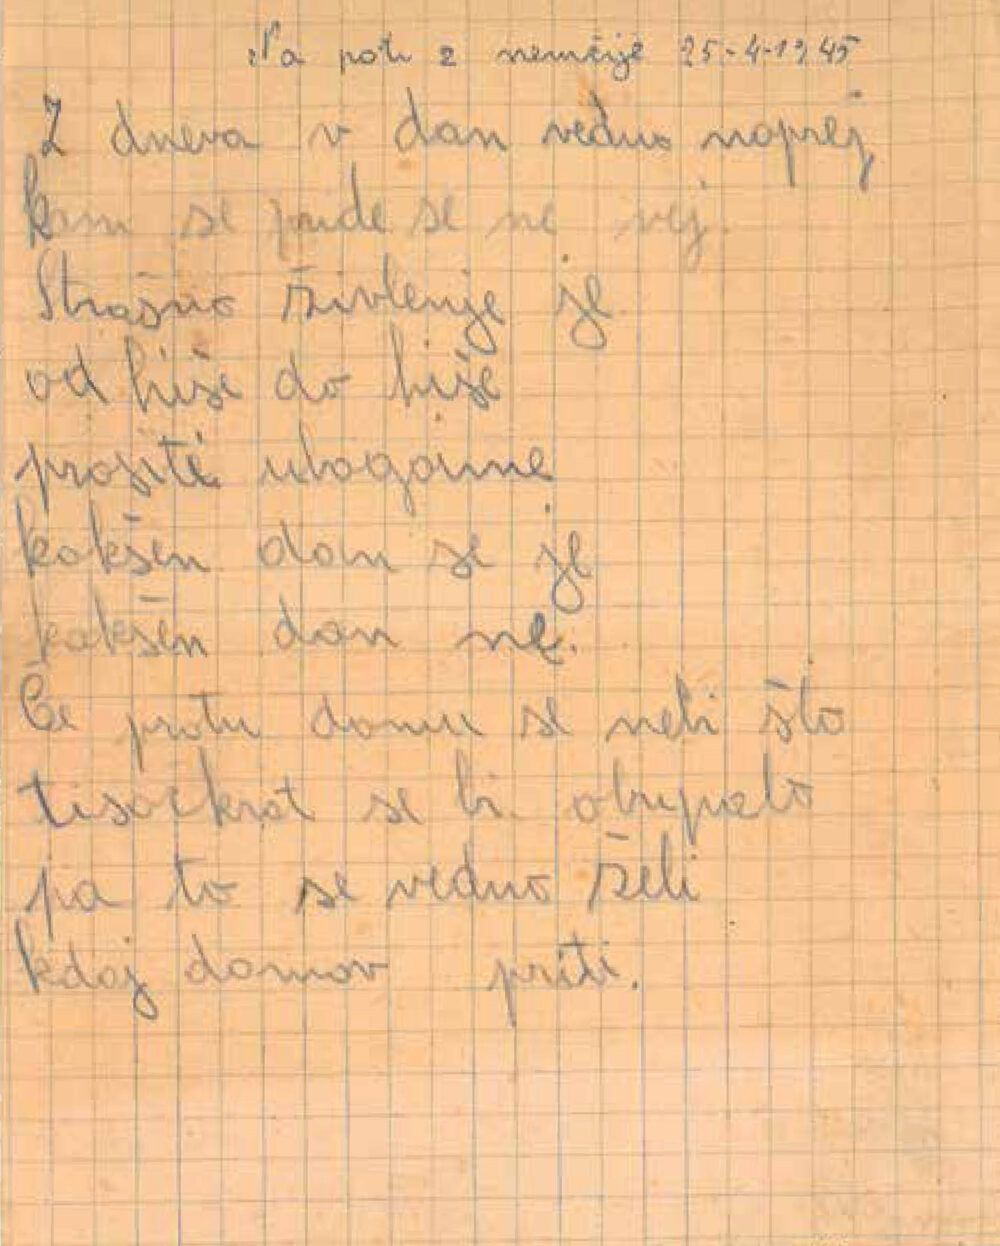 Na poti z nemčije 25-4-1945
Z dneva v dan vedno naprej
kam se pride se ne vej.
Strašno živlenje je
od hiše do hiše
prositi ubogaime
kakšen dan se je
kakšen dan ne.
Če protu domu se nebi šlo
tisočkrat se bi obupalo
pa to se vedno želi
kdaj domov priti.